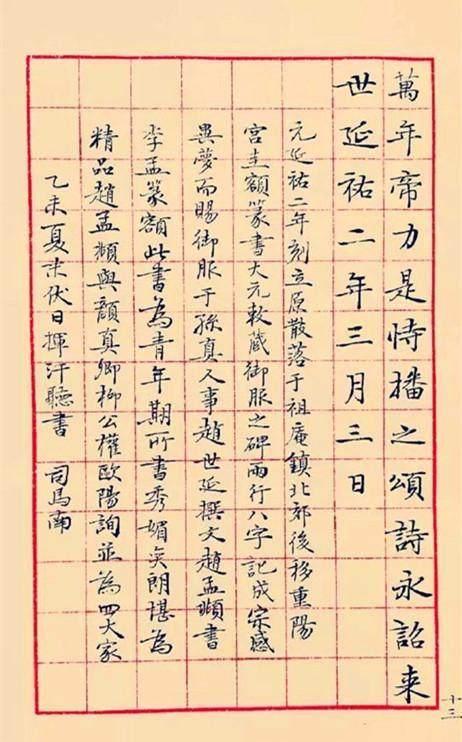 萬年帝力是恃播之頌詩永詔来
世延祐二年三月三日
元延祐二年刻立原散落于祖庵鎮北郊後移重陽
宮圭額篆書大元敕藏御服之碑兩行八字記成宗感
異夢而賜御服于孫真人事趙世延撰文趙孟頫書
李孟篆額此書為青年期所書秀媚爽朗堪為
精品趙孟頫與顏真卿柳公權歐陽詢並為四大家
乙未夏末伏日揮汗聽書 司馬南
十三